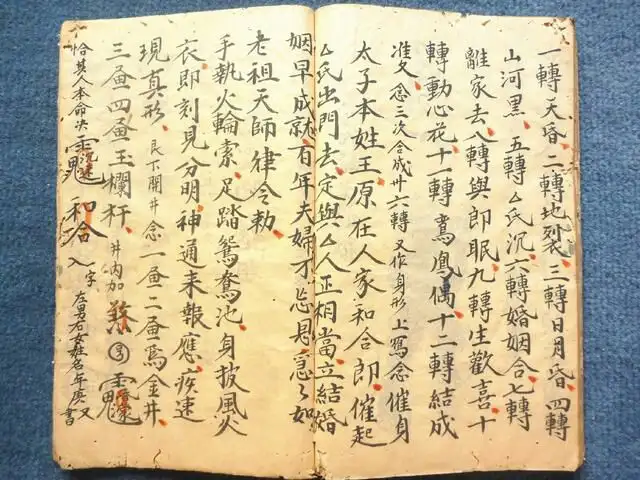 一轉天昏、二轉地裂、三轉日月昏、四轉
山河黑、五轉厶氏沉、六轉婚姻合、七轉
離家去、八轉與郎眠、九轉生歡喜、十
轉動心花、十一轉鴛鳳偶、十二轉結成
准文 念三次合成卅六轉 又作身形 上寫念催身
太子本姓王原在人家和合郎、催起
厶氏出門去、定與厶人正相當、立結婚
姻早成就、百年夫婦不忘恩、急々如
老祖天師律令勅、
手執火輪索、足踏鴛鴦池、身披風火
衣、即刻見分明、神通来報應、疾速
現真形、良下開井念 一畐二畐為金井、
三畐四畐玉欄杆、井内加
恰其人本命决 和合 入 一字 左男右女姓名年庚 又書